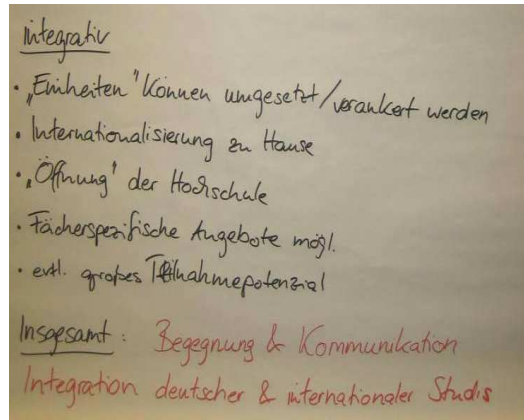 integrativ
• „Einheiten" können umgesetzt/verankert werden
• Internationalisierung zu Hause
• „Öffnung" der Hochschule
• Fächerspezifische Angebote mögl.
• evtl. großes Teilnahmepotenzial
Insgesamt: Begegnung & Kommunikation
Integration deutscher & internationaler Studis